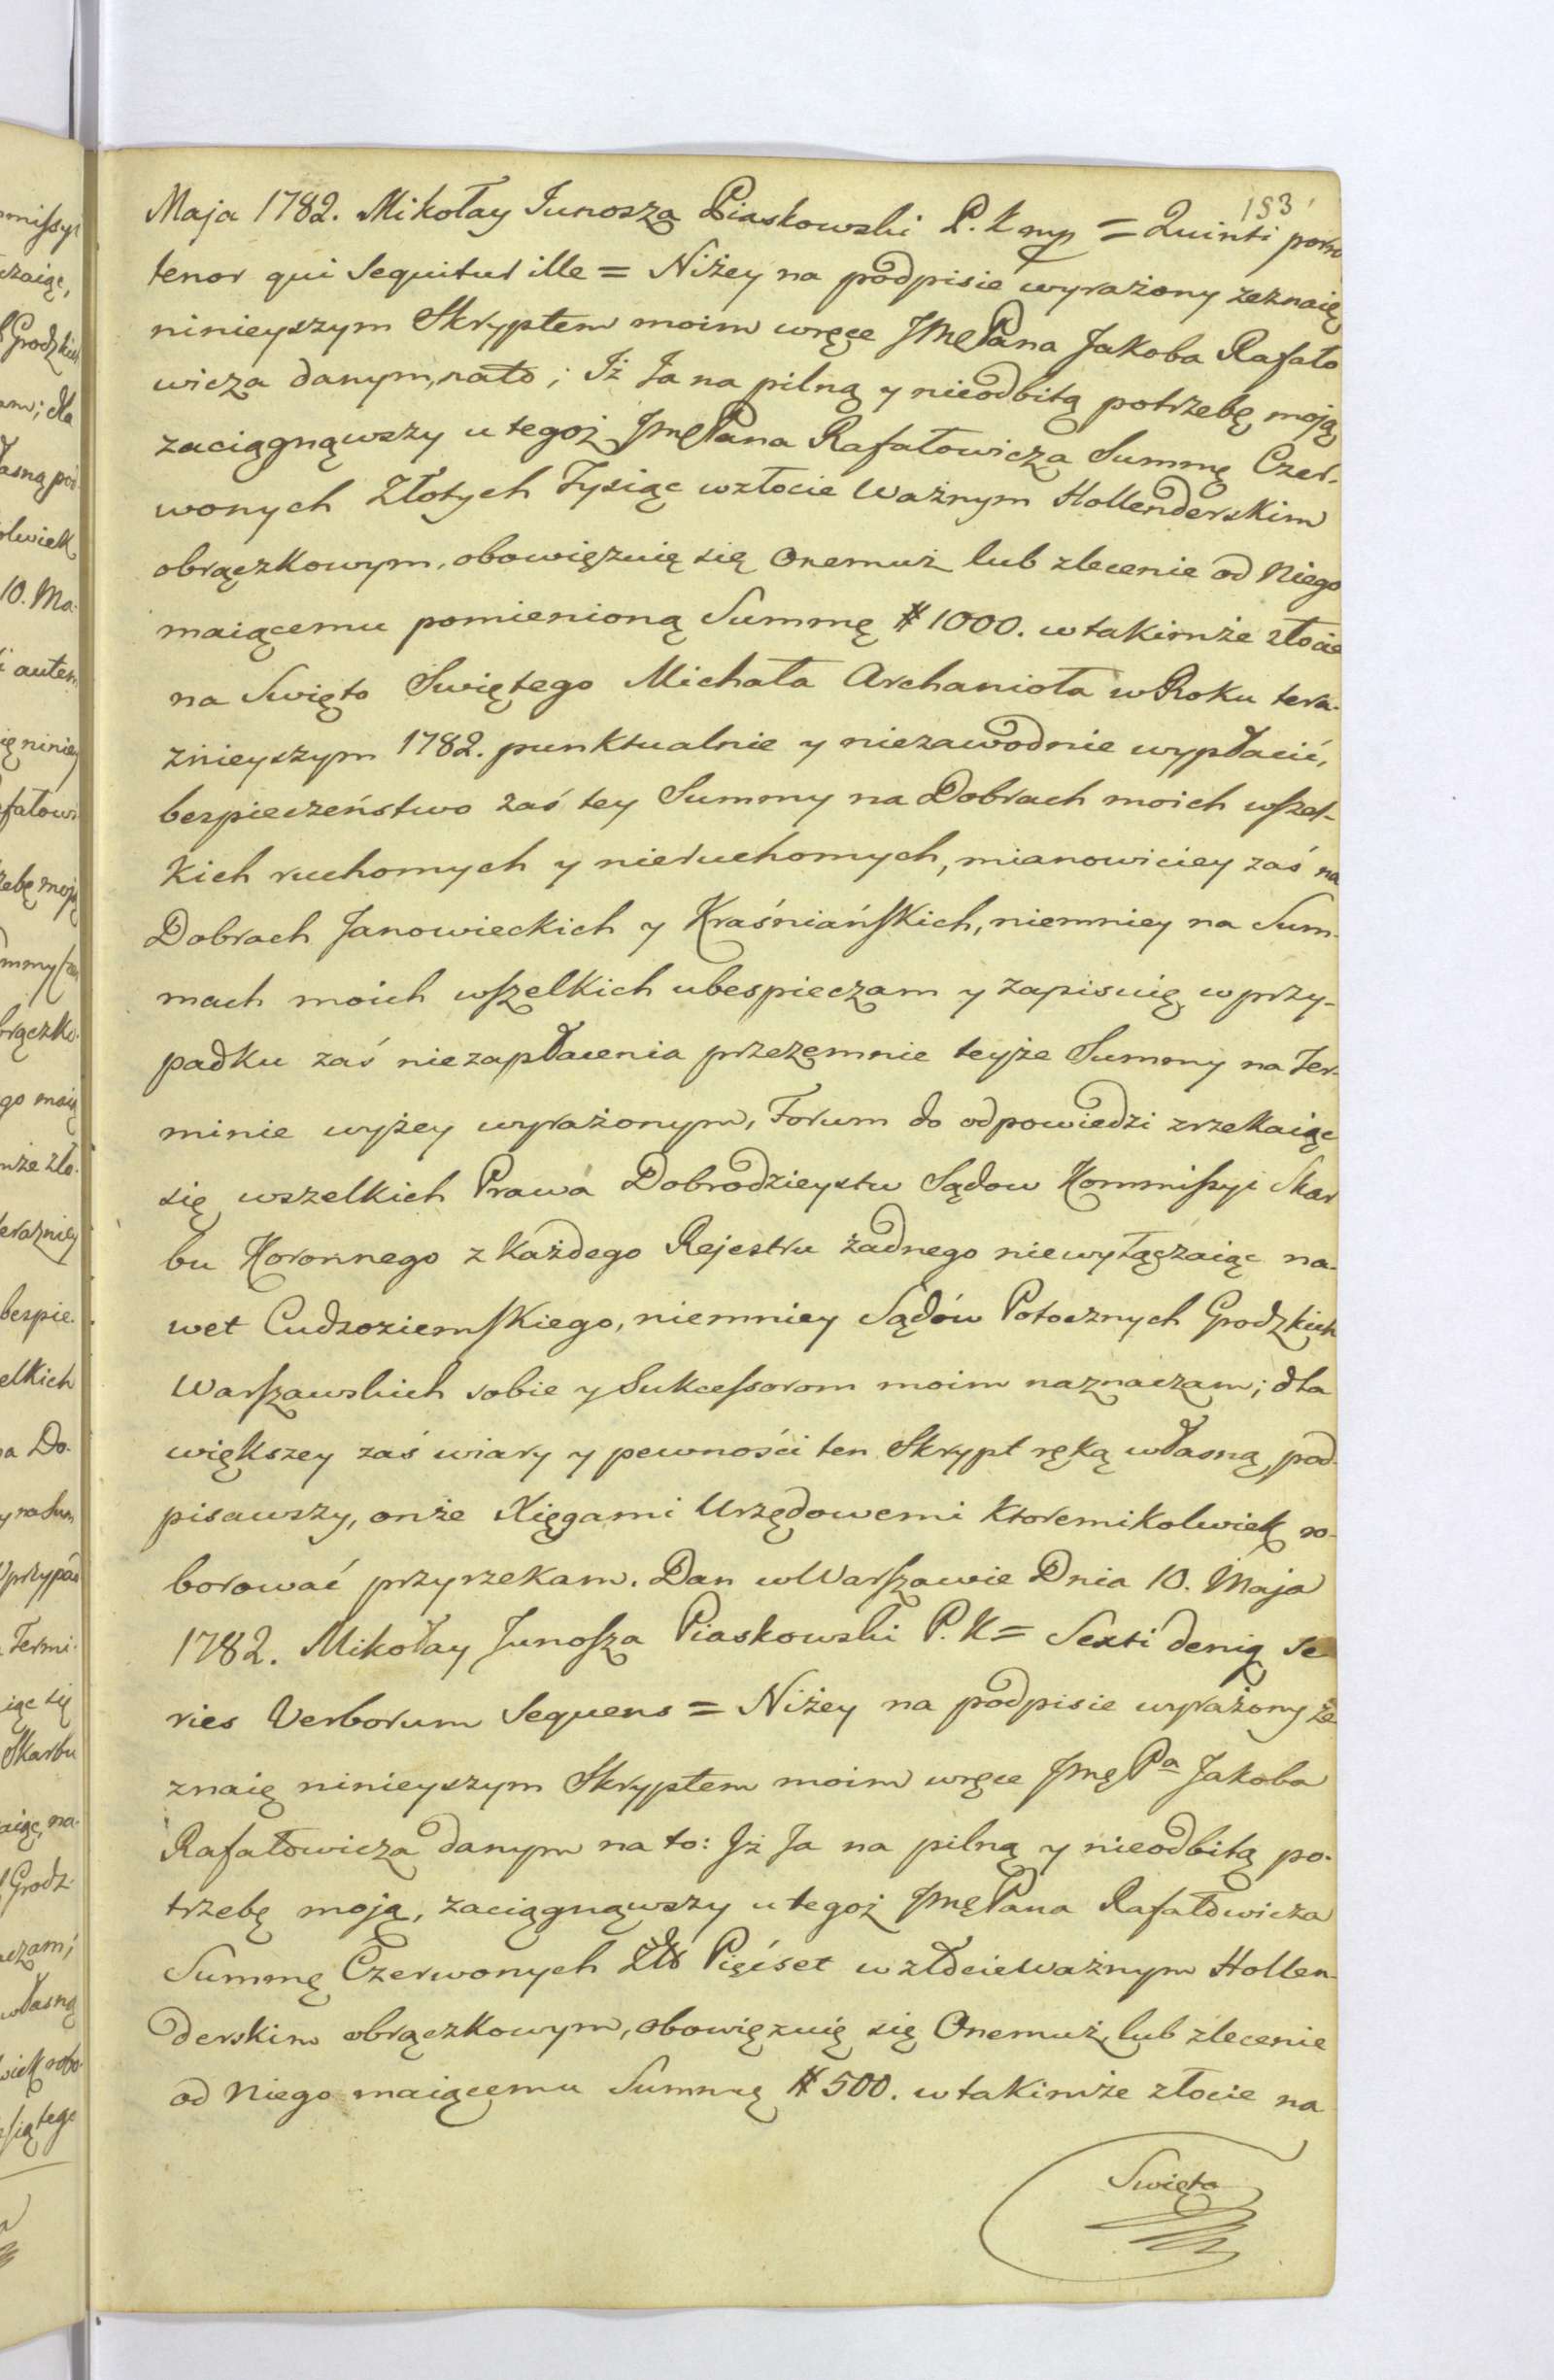 193
Maja 1782. Mikołay Junosza Piaskowski P. K mp = Quinti porro
tenor qui Sequitur ille = Niżey na podpisie wyrażony zeznaię
ninieyszym Skryptem moim wręce JmęPana Jakoba Rafało
wicza danym, nato; Iż Ja na pilną y nieodbitą potrzebę moją
zaciągnąwszy u tegoż JmęPana Rafałowicza Summę Czer-
wonych Złotych Tysiąc wzłocie Ważnym Hollenderskim
obrączkowym, obowięzuię się Onemuż lub zlecenie od Niego
maiącemu pomienioną Summę # 1000. wtakimże złocie
na Swięto Swiętego Michała Archanioła w Roku tera-
znieyszym 1782. punktualnie y niezawodnie wypłacić,
bezpieczeństwo zaś tey Summy na Dobrach moich wszel-
kich ruchomych y nieruchomych, mianowiciey zaś na
Dobrach Janowieckich y Kraśniańskich, niemniey na Sum-
mach moich wszelkich ubespieczam y zapisuię, wprzy-
padku zaś niezapłacenia przezemnie teyże Summy na Ter-
minie wyżey wyrażonym, Forum do odpowiedzi zrzekaiąc
się wszelkich Prawa Dobrodzieystw Sądow Kommissyi Skar
bu Koronnego z każdego Rejestru żadnego niewyłączaiąc na-
wet Cudzoziemskiego, niemniey Sądów Potocznych Grodzkich
Warszawskich sobie y Sukcessorom moim naznaczam; dla
większey zaś wiary y pewności ten Skrypt ręką własną pod-
pisawszy, onże Xięgami Urzędowemi ktoremikolwiek ro-
borować przyrzekam. Dan w Warszawie Dnia 10. Maja
1782. Mikołay Junosza Piaskowski P. K = Sexti deniq Se
ries Verborum Sequens = Niżey na podpisie wyrażony ze
znaię ninieyszym Skryptem moim wręce Jmę Pa Jakoba
Rafałowicza danym na to: Iż Ja na pilną y nieodbitą po-
trzebę moją, zaciągnąwszy u tegoż JmęPana Rafałowicza
Summę Czerwonych Złł Pięćset w złocie Ważnym Hollen-
derskim obrączkowym, obowięzuię się Onemuż lub zlecenie
od Niego maiącemu Summę # 500. wtakimże złocie na
Swięto